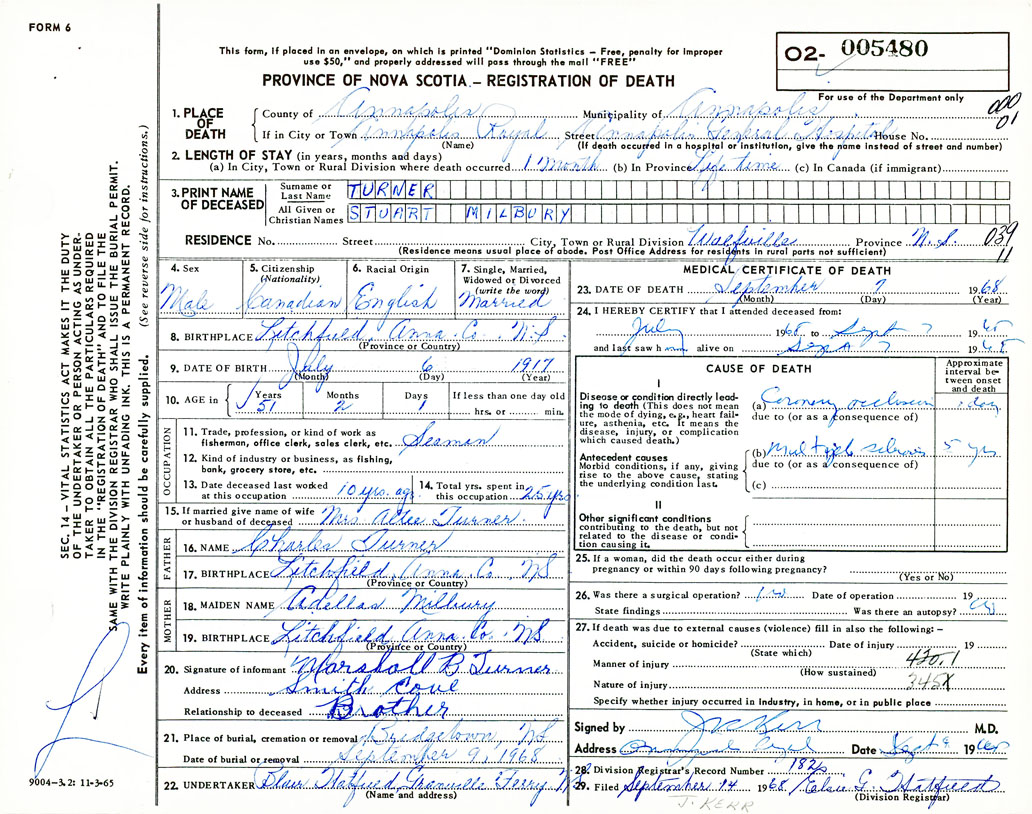 FORM 6
This form, if placed in an envelope, on which is printed "Dominion Statistics – Free, penalty for improper
use $50," and properly addressed will pass through the mail "FREE"
PROVINCE OF NOVA SCOTIA – REGISTRATION OF DEATH
02- 005480
For use of the Department only
000
01
1. PLACE OF DEATH
County of Annapolis Municipality of Annapolis
If in City or Town Annapolis Royal Street Annapolis General Hospital House No.
(Name) (If death occurred in a hospital or institution, give the name instead of street and number)
2. LENGTH OF STAY (in years, months and days)
(a) In City, Town or Rural Division where death occurred 1 Month (b) In Province Life time (c) In Canada (if immigrant)
3. PRINT NAME OF DECEASED
Surname or Last Name TURNER
All Given or Christian Names STUART MILBURY
RESIDENCE No. Street City, Town or Rural Division Wolfville Province N.S. 039
11
(Residence means usual place of abode. Post Office Address for residents in rural parts not sufficient)
4. Sex
Male
5. Citizenship (Nationality)
Canadian
6. Racial Origin
English
7. Single, Married, Widowed or Divorced (write the word)
Married
8. BIRTHPLACE Litchfield, Anna. Co. N.S
(Province or Country)
9. DATE OF BIRTH July 6 1917
(Month) (Day) (Year)
10. AGE in Years Months Days If less than one day old
51 2 1 hrs. or min.
OCCUPATION
11. Trade, profession, or kind of work as fisherman, office clerk, sales clerk, etc. Seaman
12. Kind of industry or business, as fishing, bank, grocery store, etc.
13. Date deceased last worked at this occupation 10 yrs. ago
14. Total yrs. spent in this occupation 25 yrs
15. If married give name of wife or husband of deceased Mrs Allie Turner
FATHER
16. NAME Charles Turner
17. BIRTHPLACE Litchfield, Anna Co., NS
(Province or Country)
MOTHER
18. MAIDEN NAME Adella Milbury
19. BIRTHPLACE Litchfield Anna Co. NS
(Province or Country)
20. Signature of informant Marshall B. Turner
Address Smith Cove
Relationship to deceased Brother
21. Place of burial, cremation or removal Bridgetown, NS
Date of burial or removal September 9, 1968
22. UNDERTAKER Blair Hatfield Granville Ferry NS
(Name and address)
MEDICAL CERTIFICATE OF DEATH
23. DATE OF DEATH September 7 1968
(Month) (Day) (Year)
24. I HEREBY CERTIFY that I attended deceased from:
July 1968 to Sept 7 19
and last saw h alive on Sept 7 19
CAUSE OF DEATH
Approximate interval between onset and death
I
Disease or condition directly leading to death (This does not mean the mode of dying, e.g., heart failure, asthenia, etc. It means the disease, injury, or complication which caused death.)
(a) Coronary occlusion 1 day
due to (or as a consequence of)
Antecedent causes
Morbid conditions, if any, giving rise to the above cause, stating the underlying condition last.
(b) Multiple sclerosis 5 yrs
due to (or as a consequence of)
(c)
II
Other significant conditions contributing to the death, but not related to the disease or condition causing it.
25. If a woman, did the death occur either during pregnancy or within 90 days following pregnancy?
(Yes or No)
26. Was there a surgical operation? Date of operation 19
State findings Was there an autopsy?
27. If death was due to external causes (violence) fill in also the following: –
Accident, suicide or homicide? Date of injury 19
(State which)
Manner of injury 420.1
(How sustained)
Nature of injury 345X
Specify whether injury occurred in industry, in home, or in public place
Signed by J Kerr M.D.
Address Annapolis Royal Date Sept 9 1968
28. Division Registrar's Record Number 182
29. Filed September 14 1968 Elsie G. Hatfield
(Division Registrar)
J. KERR
SEC. 14 – VITAL STATISTICS ACT MAKES IT THE DUTY
OF THE UNDERTAKER OR PERSON ACTING AS UNDERTAKER TO OBTAIN ALL THE PARTICULARS REQUIRED
IN THE "REGISTRATION OF DEATH" AND TO FILE THE
SAME WITH THE DIVISION REGISTRAR WHO SHALL ISSUE THE BURIAL PERMIT.
WRITE PLAINLY WITH UNFADING INK. THIS IS A PERMANENT RECORD.
Every item of information should be carefully supplied. (See reverse side for instructions.)
9004–3.2: 11-3-65